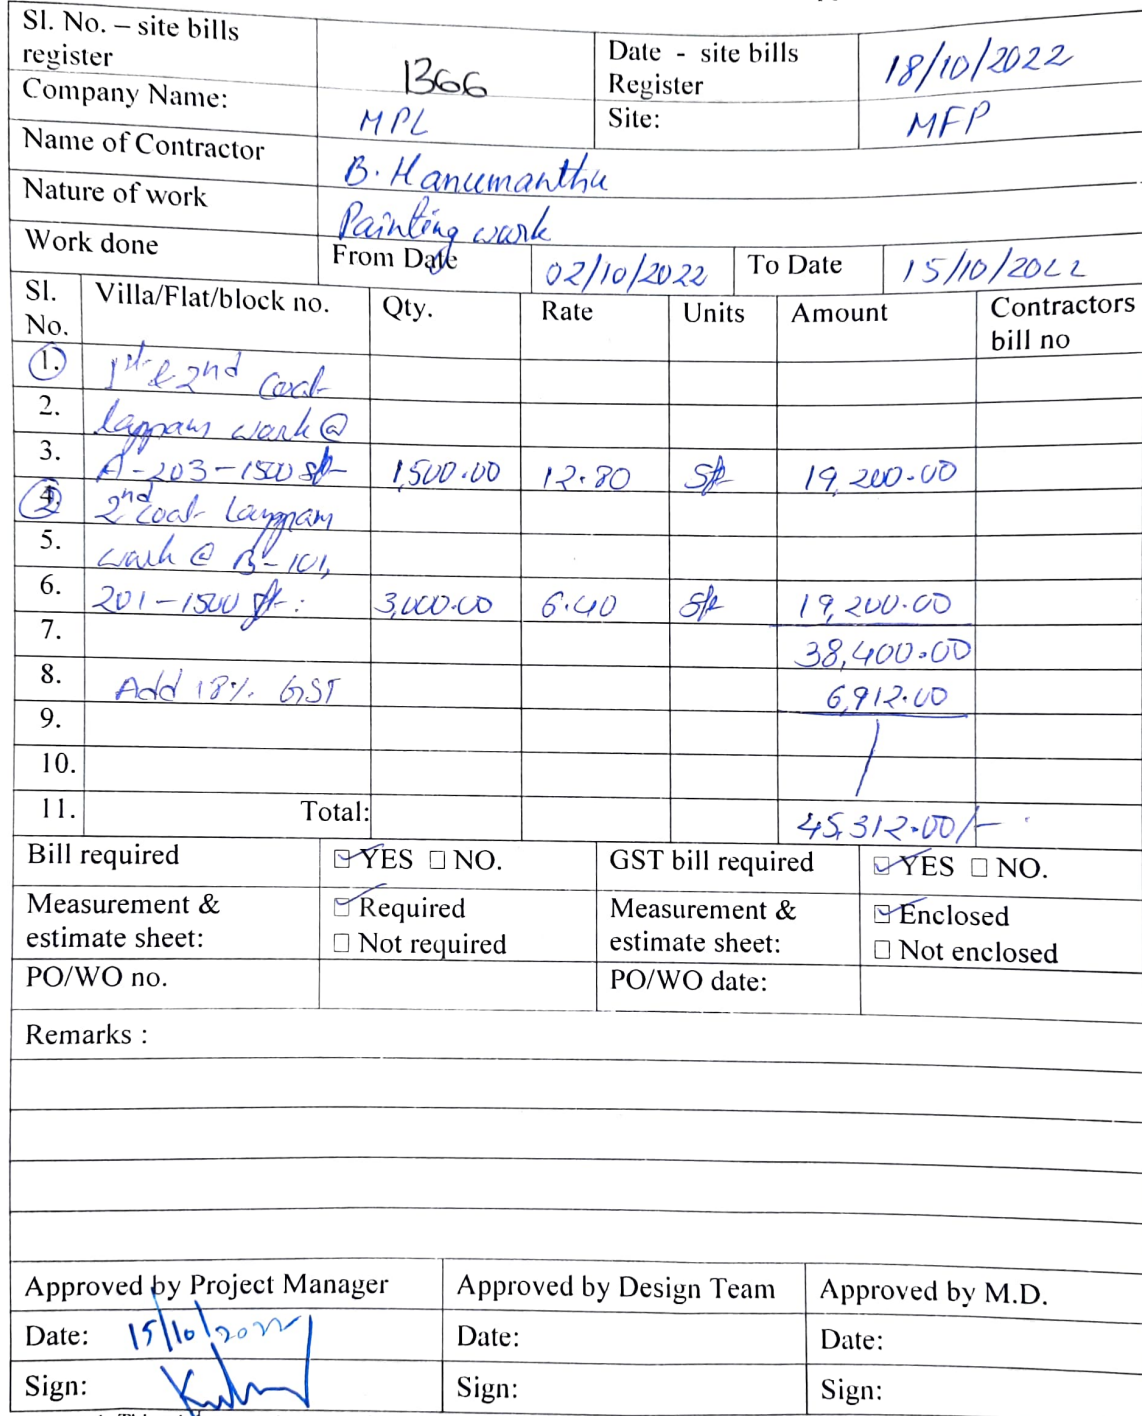 Sl. No. – site bills register 1366 Date - site bills Register 18/10/2022
Company Name: MPL Site: MFP
Name of Contractor B. Hanumanthu
Nature of work Painting work
Work done From Date 02/10/2022 To Date 15/10/2022
Sl. No. Villa/Flat/block no. Qty. Rate Units Amount Contractors bill no
1. 1st & 2nd Coat
2. lappam work @
3. A-203-1500 sft 1,500.00 12.80 Sft 19,200.00
4. 2 2nd coat Lappam
5. work @ B-101,
6. 201-1500 sft: 3,000.00 6.40 Sft 19,200.00
7. 38,400.00
8. Add 18% GST 6,912.00
9.
10.
11. Total: 45,312.00/-
Bill required YES NO. GST bill required YES NO.
Measurement & estimate sheet: Required Not required Measurement & estimate sheet: Enclosed Not enclosed
PO/WO no. PO/WO date:
Remarks :
Approved by Project Manager Approved by Design Team Approved by M.D.
Date: 15/10/2022 Date: Date:
Sign: Sign: Sign: